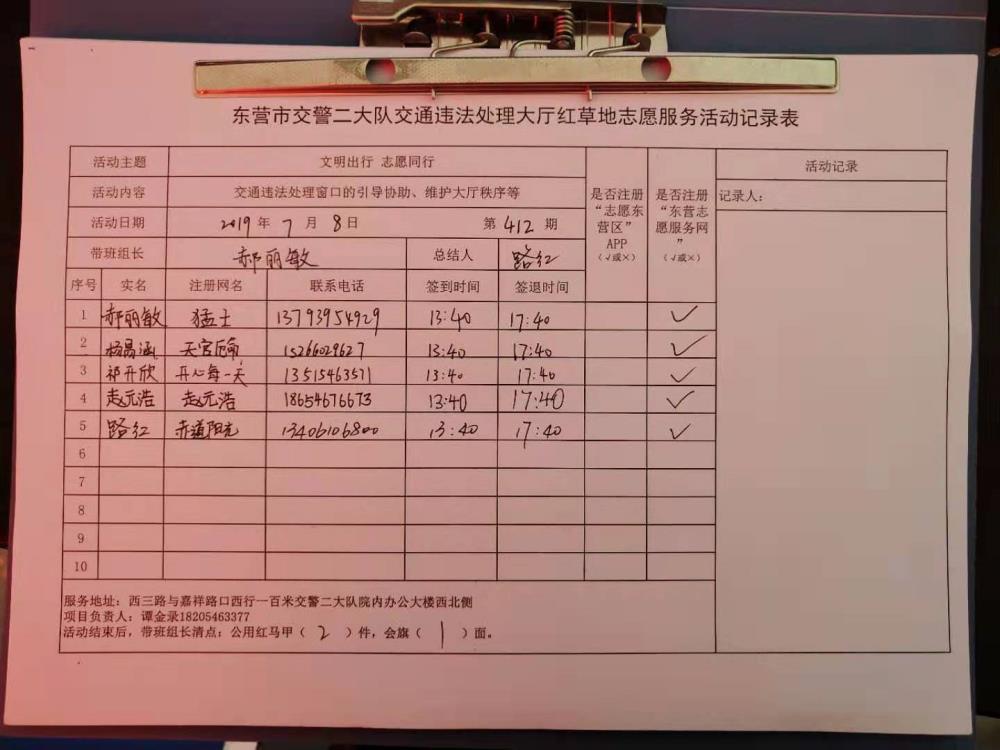 东营市交警二大队交通违法处理大厅红草地志愿服务活动记录表
活动主题 文明出行 志愿同行
活动内容 交通违法处理窗口的引导协助、维护大厅秩序等
活动日期 2019年 7月 8日 第 412 期
带班组长 郝丽敏 总结人 路红
是否注册“志愿东营区”APP（√或×）
是否注册“东营志愿服务网”（√或×）
活动记录
记录人：
序号 实名 注册网名 联系电话 签到时间 签退时间
1 郝丽敏 猛士 13793954929 13:40 17:40 ✓
2 杨昌涵 天宫 15266029627 13:40 17:40 ✓
3 祁开欣 开心每一天 13515463571 13:40 17:40 ✓
4 赵元浩 赵元浩 18654676673 13:40 17:40 ✓
5 路红 赤道阳光 13406106800 13:40 17:40 ✓
6
7
8
9
10
服务地址：西三路与嘉祥路口西行一百米交警二大队院内办公大楼西北侧
项目负责人：谭金录18205463377
活动结束后，带班组长清点：公用红马甲（ 2 ）件，会旗（ 1 ）面。